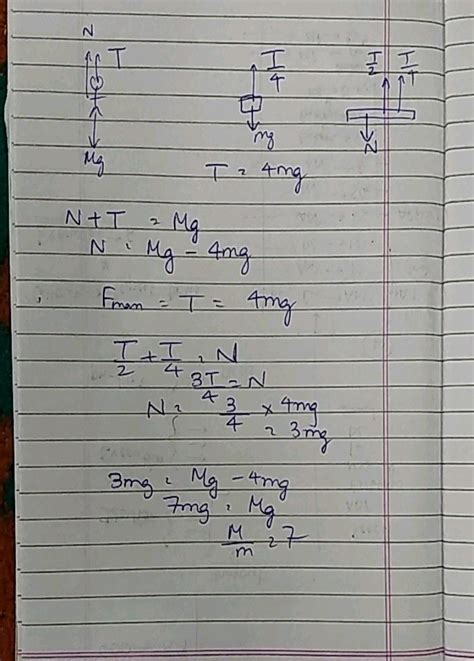 N
T
Mg
T/4
mg
T/2 T/4
N
T = 4mg
N + T = Mg
N = Mg - 4mg
Fman = T = 4mg
T/2 + T/4 = N
3T/4 = N
N = 3/4 × 4mg
= 3mg
3mg = Mg - 4mg
7mg = Mg
M/m = 7